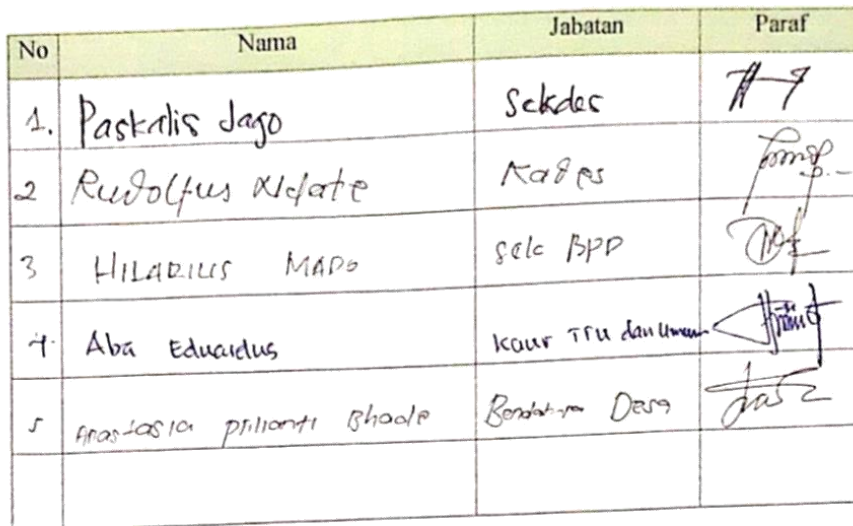 No Nama Jabatan Paraf
1. Paskalis Jago Sekdes
2 Rudolfus Kades
3 HILARIUS MADO Sek BPD
4. Aba Eduardus Kaur TTU dan Umum
5 Anastasia Prilianti Bhade Bendahara Desa